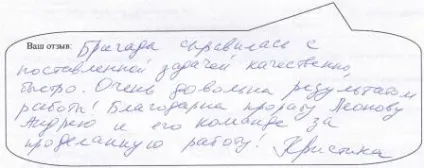 Ваш отзыв: Бригада справилась с
поставленной задачей качественно,
быстро. Очень довольна результатом
работы! Благодарна прорабу Леонову
Андрею и его команде за
проделанную работу! Кристина